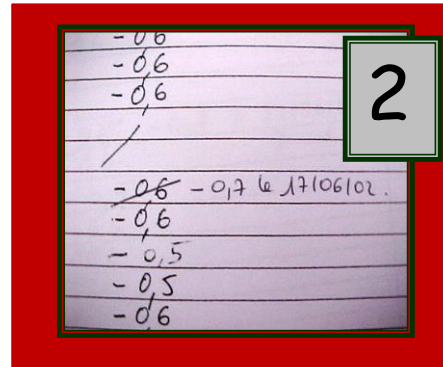 - 0,6
- 0,6
- 0,6
2
- 0,6 - 0,7 le 17/06/02.
- 0,6
- 0,5
- 0,5
- 0,6